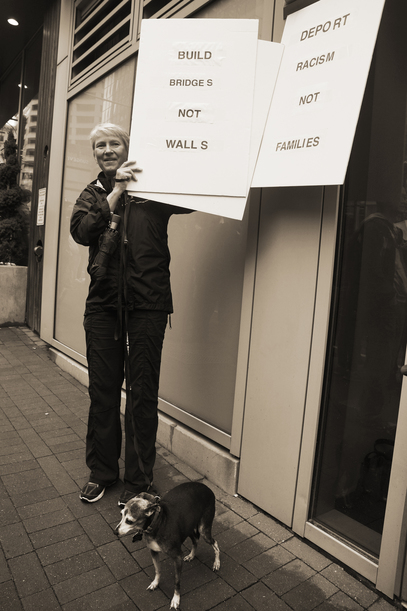 BUILD
BRIDGES
NOT
WALLS
DEPORT
RACISM
NOT
FAMILIES